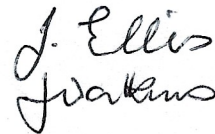 J. Ellis
J Watkins